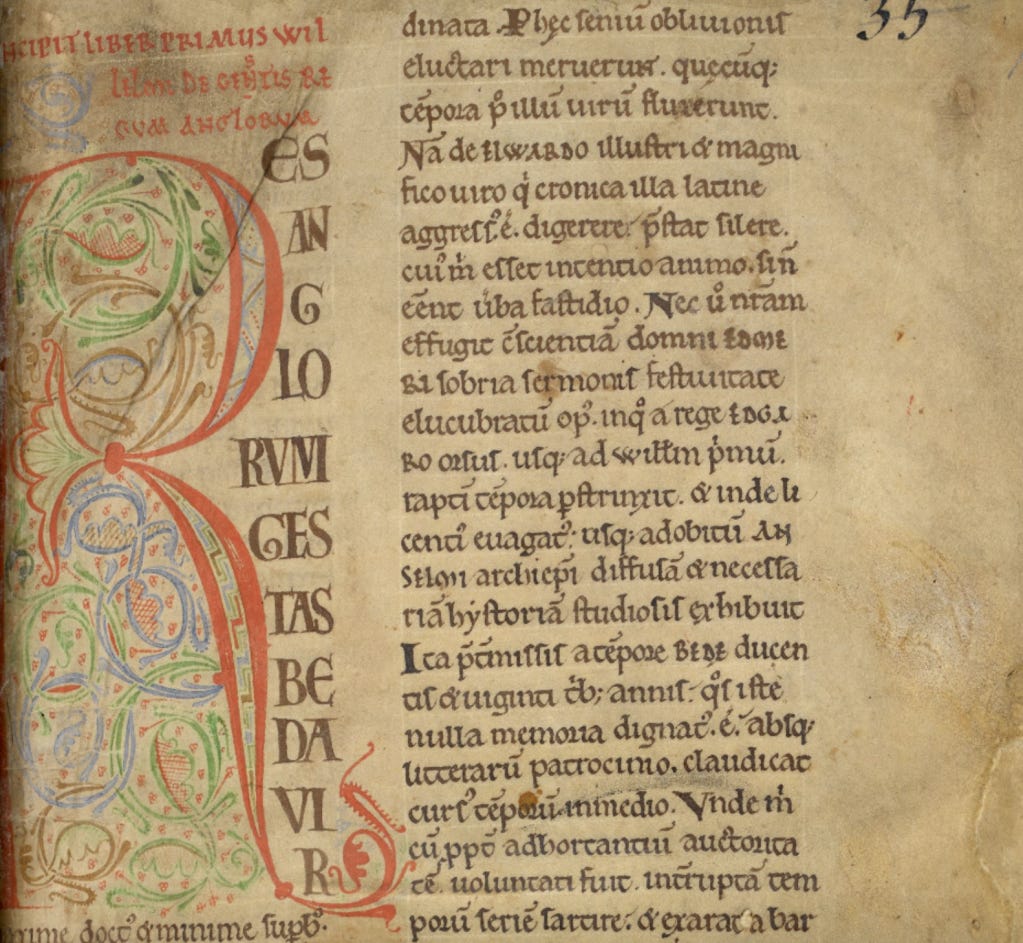 INCIPIT LIBER PRIMUS WIL
lelmi De GESTIS RE
GUM ANGLORUM
RES
AN
G
LO
RVM
GES
TAS
BE
DA
VI
R
doctꝰ & minime suꝑbꝰ.
35
dinata. P hęc seniū obliuionis
eluctari meruerunt. quecūq;
tēpora ꝑ illū uirū fluxerunt.
Nā de ELWARDO illustri & magni
fico uiro q̇ cronica illa latine
aggressꝰ ē. digerere. p̄stat silere.
cuiꝰ m̄ esset intentio animo. sin̄
eēnt ūba fastidio. Nec ů nr̄am
effugit c̄scientiā domni EDME
RI sobria sermonis festiuitate
elucubratū opꝰ. inqͦ a rege EDGA
RO orsus. usq; ad Willm̄ p̍mū.
raptī tēpora ꝑstrinxit. & inde li
centiꝰ euagatꝰ; usq; adobitū AN
SELMI archiep̄i diffusā & necessa
riā hystoriā studiosis exhibuit
Ita p̄tmissis a tēpore BEDE ducen
tis & uiginti tb; annis. qͦs iste
nulla memoria dignatꝰ. ē. absq;
litterarū patrocinio. claudicat
cursꝰ tēporū inmedio. Vnde m̍
cū ꝓpt̄ adhortantiū auctorita
tē uoluntati fuit. int̄ruptā tem
porū seriē sartire. & exarata bar